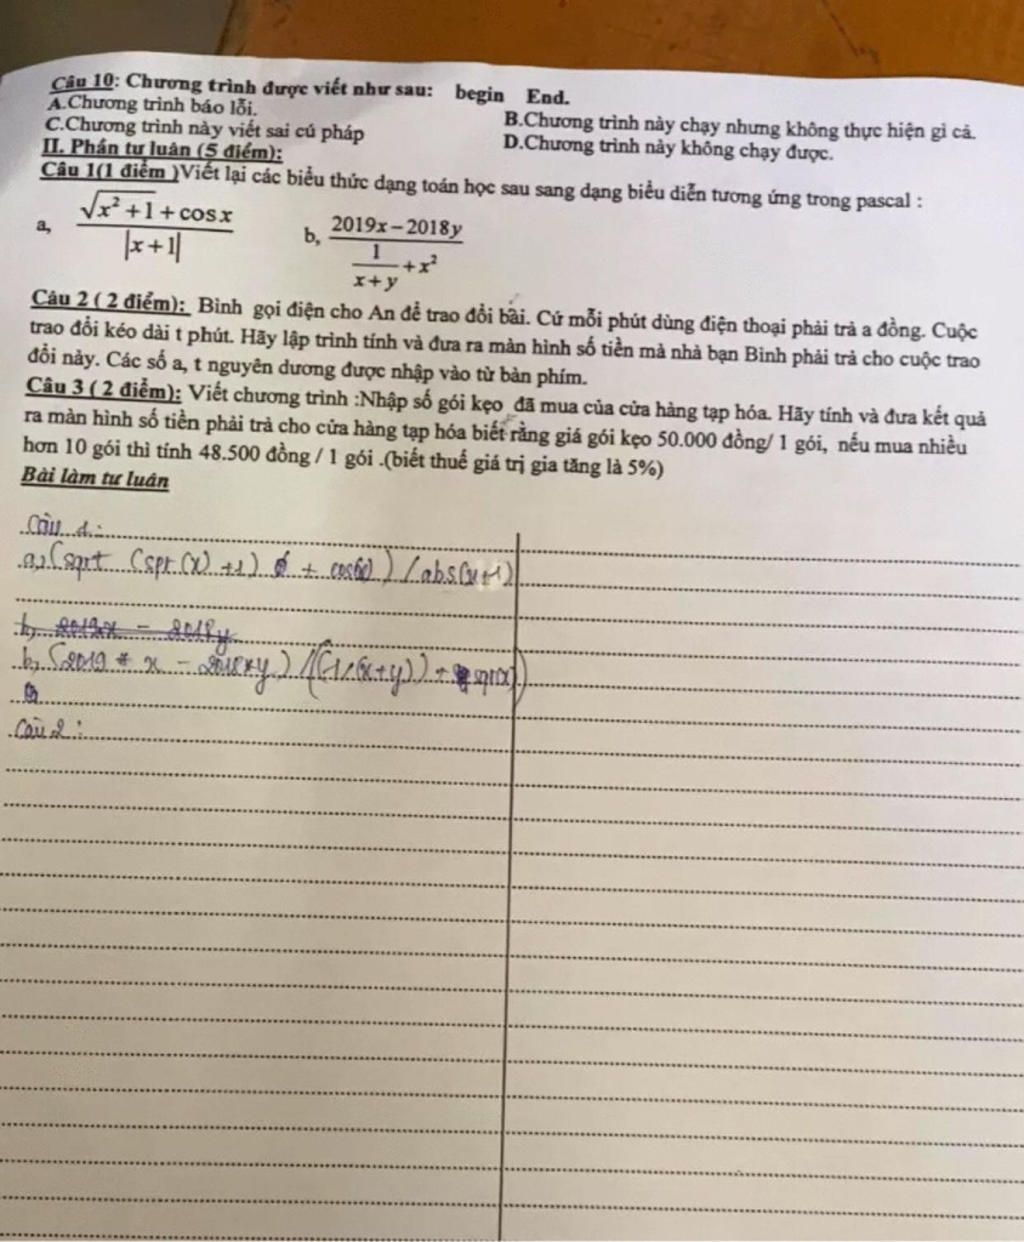 Câu 10: Chương trình được viết như sau: begin End.
A.Chương trình báo lỗi.
B.Chương trình này chạy nhưng không thực hiện gì cả.
C.Chương trình này viết sai cú pháp
D.Chương trình này không chạy được.
II. Phần tự luận (5 điểm):
Câu 1(1 điểm )Viết lại các biểu thức dạng toán học sau sang dạng biểu diễn tương ứng trong pascal :
a, (√(x²+1) + cos x) / |x+1|
b, (2019x − 2018y) / (1/(x+y) + x²)
Câu 2 ( 2 điểm): Bình gọi điện cho An để trao đổi bài. Cứ mỗi phút dùng điện thoại phải trả a đồng. Cuộc
trao đổi kéo dài t phút. Hãy lập trình tính và đưa ra màn hình số tiền mà nhà bạn Bình phải trả cho cuộc trao
đổi này. Các số a, t nguyên dương được nhập vào từ bàn phím.
Câu 3 ( 2 điểm): Viết chương trình :Nhập số gói kẹo đã mua của cửa hàng tạp hóa. Hãy tính và đưa kết quả
ra màn hình số tiền phải trả cho cửa hàng tạp hóa biết rằng giá gói kẹo 50.000 đồng/ 1 gói, nếu mua nhiều
hơn 10 gói thì tính 48.500 đồng / 1 gói .(biết thuế giá trị gia tăng là 5%)
Bài làm tự luận
Câu 1:
a, (sqrt (spr(x) +1) + cos(x) ) / abs(x+1)
b, 2019x - 2018y
b, (2019 * x - 2018*y) / ((1/(x+y)) + sqr(x))
Câu 2: